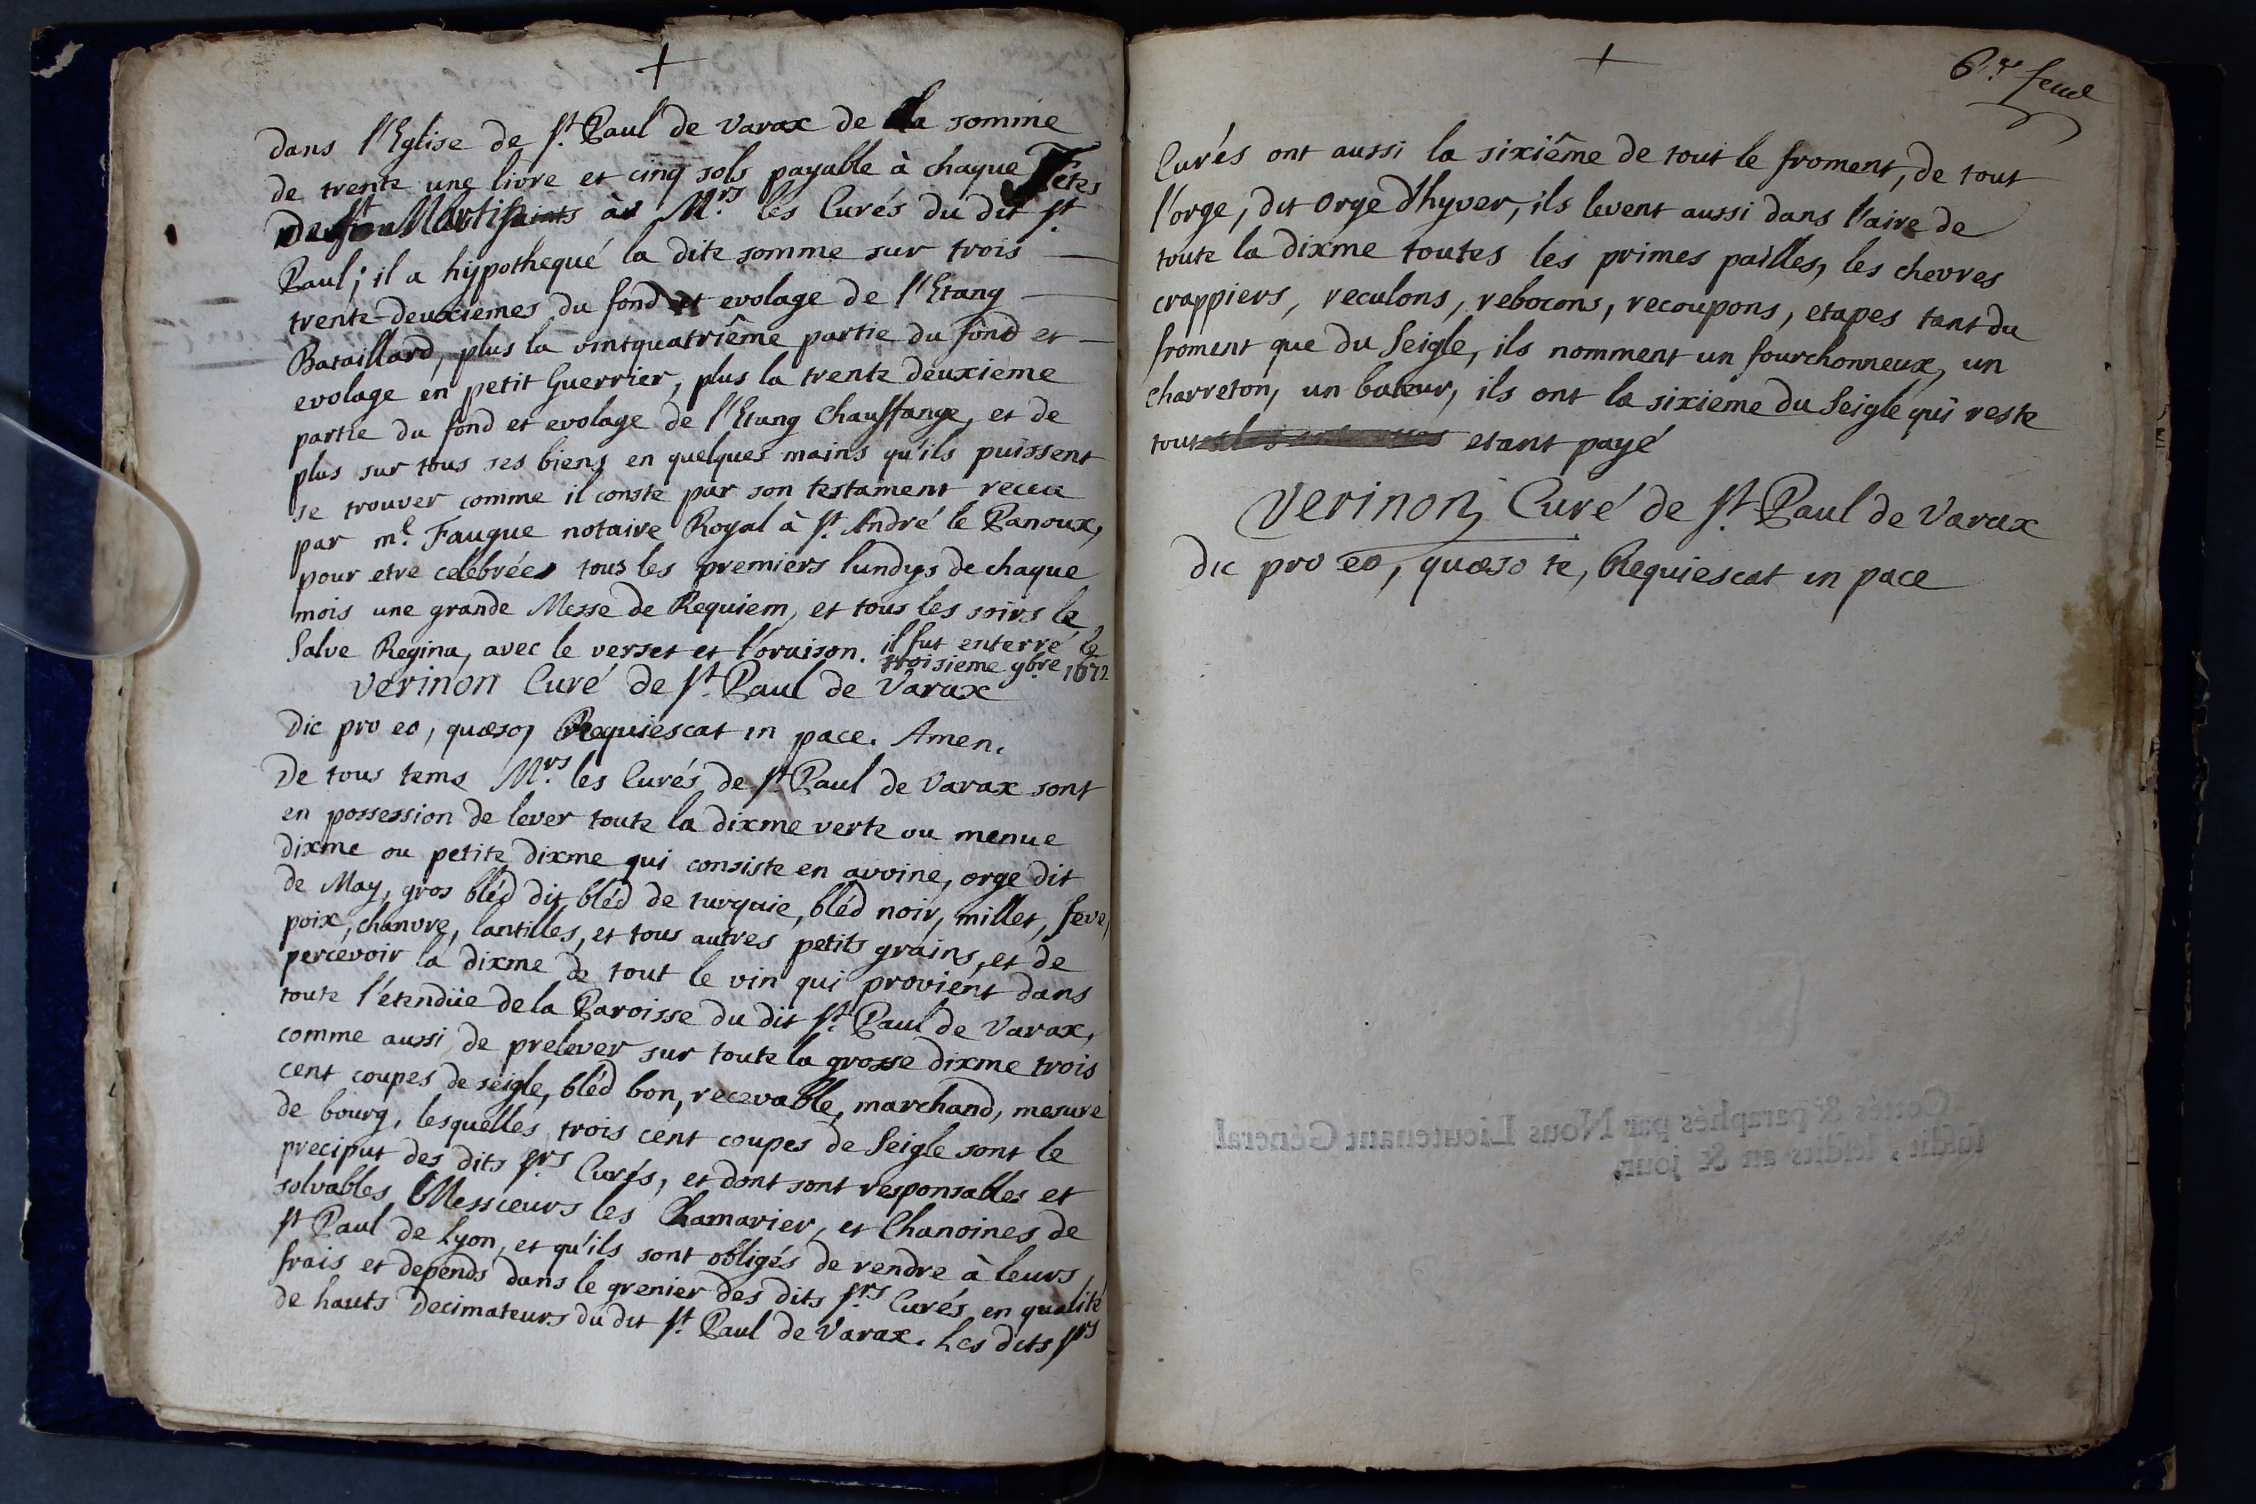 dans l'Eglise de St. Paul de Varax de la somme
de trente une livre et cinq sols payable à chaque Fetes
de St Martin saints à Mrs. les Curés du dit St.
Paul; il a hypothequé la dite somme sur trois
trente-deuxiemes du fond et evolage de l'Etang
Bataillard, plus la vintquatriême partie du fond et
evolage en petit Guerrier, plus la trente deuxieme
partie du fond et evolage de l'Etang Chauffange, et de
plus sur tous ses biens en quelques mains qu'ils puissent
se trouver comme il conste par son testament receu
par me. Faugue notaire Royal à St. André le Panoux,
pour etre celebrées tous les premiers lundys de chaque
mois une grande Messe de Requiem, et tous les soirs le
Salve Regina, avec le verset et l'oraison. il fut enterré le
troisieme 9bre 1672
Verinon Curé de St. Paul de Varax
Dic pro eo, quæso, Requiescat in pace. Amen.
De tous tems Mrs. les Curés de St. Paul de Varax sont
en possession de lever toute la dixme verte ou menue
dixme ou petite dixme qui consiste en avoine, orge dit
de May, gros bléd dit bléd de turquie, bléd noir, millet, feve,
poix, chanvre, lantilles, et tous autres petits grains, et de
percevoir la dixme de tout le vin qui provient dans
toute l'étendüe de la Paroisse du dit St. Paul de Varax,
comme aussi de prelever sur toute la grosse dixme trois
cent coupes de seigle, bléd bon, recevable, marchand, mesure
de bourg, lesquelles trois cent coupes de Seigle sont le
preciput des dits Srs. Curés, et dont sont responsables et
solvables Messieurs les Chamarier, et Chanoines de
St Paul de Lyon, et qu'ils sont obligés de rendre à leurs
frais et depends dans le grenier des dits Srs. Curés, en qualité
de hauts Decimateurs du dit St. Paul de Varax. Les dits Srs
6.e feuil
Curés ont aussi la sixiême de tout le froment, de tout
l'orge, dit orge d'hyver, ils levent aussi dans l'aire de
toute la dixme toutes les primes pailles, les chevres
crappiers, reculons, rebocons, recoupons, etapes tant du
froment que du Seigle, ils nomment un fourchonneux, un
charreton, un bateur, ils ont la sixieme du Seigle qui reste
tout etant payé
Verinon, Curé de St. Paul de Varax
dic pro eo, quæso te, Requiescat in pace
Cottés & paraphés par Nous Lieutenant Général
susdit, lesdits an & jour.